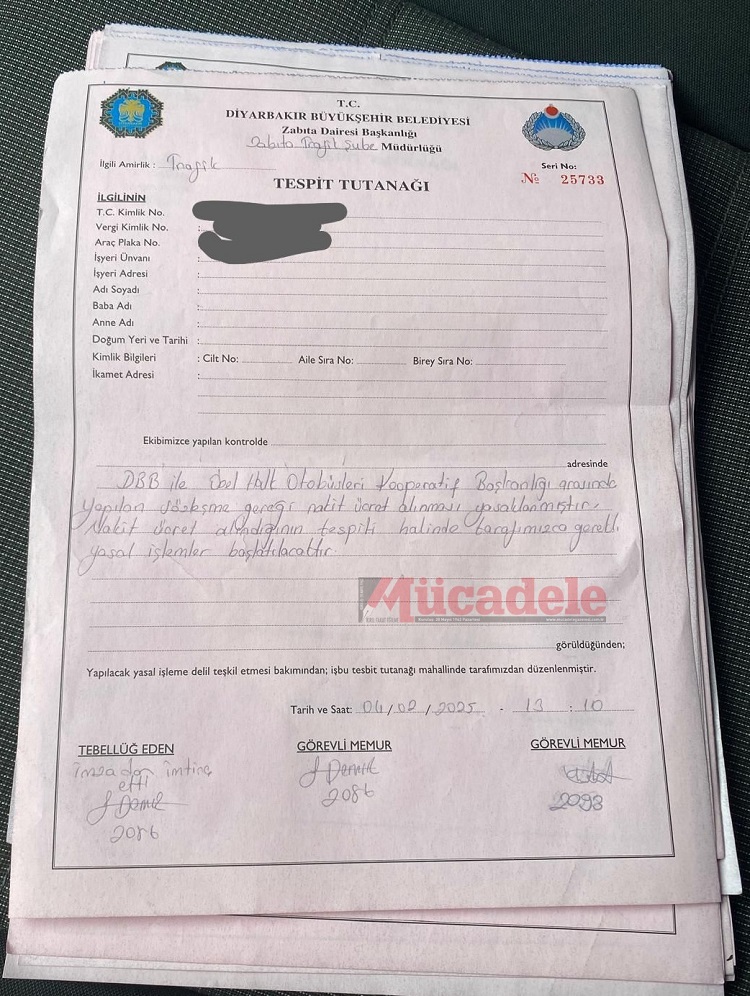 T.C.
DİYARBAKIR BÜYÜKŞEHİR BELEDİYESİ
Zabıta Dairesi Başkanlığı
Zabıta Trafik Şube Müdürlüğü
İlgili Amirlik : Trafik
Seri No:
№ 25733
TESPİT TUTANAĞI
İLGİLİNİN
T.C. Kimlik No.
Vergi Kimlik No. :
Araç Plaka No.
İşyeri Ünvanı :
İşyeri Adresi :
Adı Soyadı :
Baba Adı :
Anne Adı :
Doğum Yeri ve Tarihi :
Kimlik Bilgileri : Cilt No: Aile Sıra No: Birey Sıra No:
İkamet Adresi :
Ekibimizce yapılan kontrolde
adresinde
DBB ile Özel Halk Otobüsleri Kooperatif Başkanlığı arasında
yapılan sözleşme gereği nakit ücret alınması yasaklanmıştır.
Nakit ücret alındığının tespiti halinde tarafımızca gerekli
yasal işlemler başlatılacaktır
Mücadele
görüldüğünden;
Yapılacak yasal işleme delil teşkil etmesi bakımından; işbu tesbit tutanağı mahallinde tarafımızdan düzenlenmiştir.
Tarih ve Saat: 04/02/2025 - 13 : 10
TEBELLÜĞ EDEN GÖREVLİ MEMUR GÖREVLİ MEMUR
İmzadan imtina
etti
2086 2086 2093